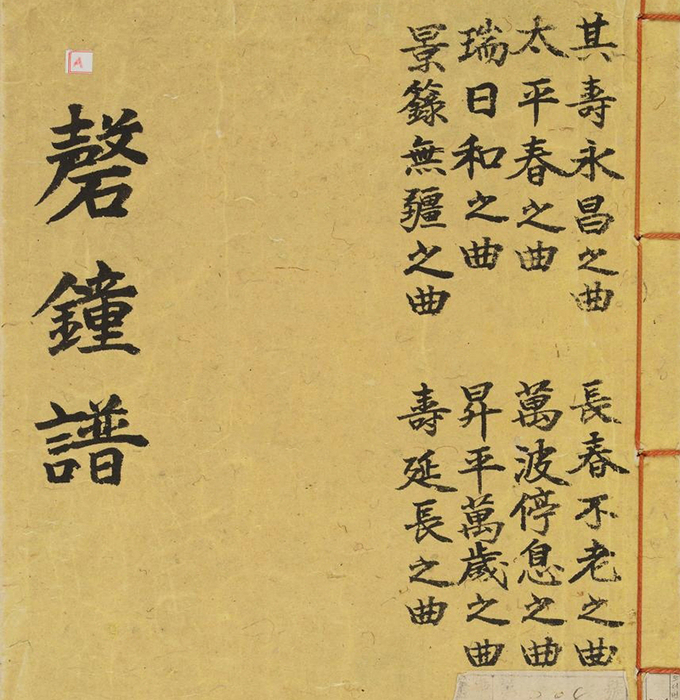 其壽永昌之曲 長春不老之曲
太平春之曲 萬波停息之曲
瑞日和之曲 昇平萬歲之曲
景籙無疆之曲 壽延長之曲
磬鐘譜
A